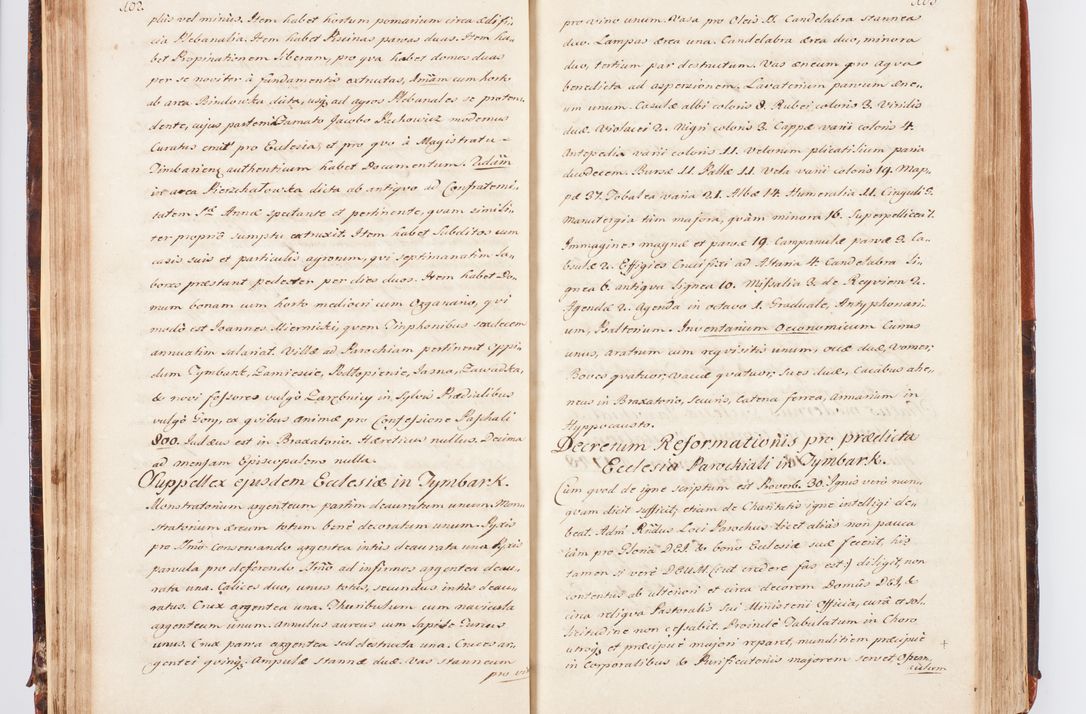 102.
plus vel minus. Item habet hortum pomarium circa ædifi-
cia Plebanalia. Item habet Piscinas parvas duas. Item ha-
bet Propinationem liberam, pro qva habet domos duas
per se noviter à fundamentis extructas, cum horto
ab area dicta, usq ad agros Plebanales se proten-
dente, cujus partem Jacobo modernus
Curatus emit pro Ecclesia, et pro qvo à Magistratu
authenticum habet Documentum.
area dicta ab antiqvo ad Confraterni-
tatem S. Annæ spectante et pertinente, qvam simili-
ter propriô sumptu extruxit. Item habet Subditos cum
casis suis et particulis agrorum, qvi septimanatim la-
bores præstant pedester per dies duos. Item habet Do-
mum bonam cum horto mediocri cum Organario, qvi
modò est Joannes Miernicki, qvem Tinphonibus sedecem
annuatim salariat. Villæ ad Parochiam pertinent oppi-
dum Tymbark, Zamiescie, Podłopienie, Jasna, Zawadka,
& novi sessores vulgò Zarębnicy in Sylvis Prædialibus
vulgò Gory, ex qvibus animæ pro Confessione Paschali
800. Judæus est in Braxatorio. Hæreticus nullus. Decima
ad mensam Episcopalem nulla.
Suppellex ejusdem Ecclesiæ in Tymbark.
Monstratorium argenteum partim deauratum unum. Mon-
stratorium æreum totum benè decoratum unum. Pyxis
pro conservando argentea intùs deaurata una. Pyxis
parvula pro deferendo ad infirmos argentea deau-
rata una. Calices duo, unus totus, secundus intùs deau-
ratus. Crux argentea una. Thuribulum cum navicula
argenteum unum. Annulus aureus cum lapide
unus. Crux parva argentea sed destructa una. Cruces ar-
gentei qvinq. Ampulæ stanneæ duæ. Vas stanneum
pro vi
103
pro vino unum. Vasa pro Oleis Candelabra stannea
duo. Lampas ærea una. Candelabra ærea duo, minora
duo, tertium par destructum. Vas æneum pro aqva
benedicta ad aspersionem. Lavatorium parvum æne-
um unum. Casulæ albi coloris 8. Rubei coloris 3. Viridis
duæ. Violacei 2. Nigri coloris 3. Cappæ varii coloris 4.
Antepedia varii coloris 11. Velorum plicatilium paria
duodecem. Bursæ 11. Pallæ 11. Vela varii coloris 19. Map-
pæ 37. Tobalea varia 21. Albæ 14. Humeralia 11. Cinguli 5.
Manutergia tùm majora, qvàm minora 16. Superpellicea 7.
Immagines magnæ et parvæ 19. Campanulæ parvæ 3. Ta-
bulæ 2. Effigies Crucifixi ad Altaria 4. Candelabra li-
gnea 6. antiqva lignea 10. Missalia 3. de Reqviem 2.
Agendæ 2. Agenda in octavo 1. Graduale, Antyphonari-
um, Psalterium. Inventarium Oeconomicum Currus
unus, aratrum cum reqvisitis unum, occæ duæ, Vomer,
Boves qvatuor, Vaccæ qvatuor, Sues duæ, Cacabus ahe-
neus in Braxatorio, Securis, Catena ferrea, Armarium in
Hyppocausto.
Decretum Reformationis pro prædicta
Ecclesia Parochiali in Tymbark.
Cum qvod de igne scriptum est Proverb. 30. Ignis verò nun-
qvam dicit sufficit, etiam de Charitatis igne intelligi de-
beat. Loci Parochus licet aliàs non pauca
jàm pro Gloria DEI, & bono Ecclesiæ suæ fecerit, his
tamen si verè DEUM (:ut credere fas est:) diligit, non
contentus ab ulteriori et circa decorem Domûs DEI, &
circa reliqva Pastoralis sui Ministerii Officia, curâ et sol-
licitudine non cessabit. Proindè Tabulatum in Choro
utroq, et præcipuè majori reparet, munditiem præcipuè
in Corporalibus & Purificatoriis majorem servet,